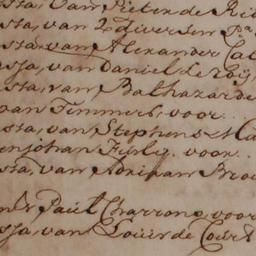 sta, van Pieter de Rid
sta, van 2 diversen Pa
sta van Alexander Cal
sja, van Daniel le roij,
sta, van Balthazar de
van Timmers, voor
sta, van Stephens & Ma
en Johan Furly. voor
sta, van Adriaan Broe
Paul Charron voor
sja, van Louis de Court